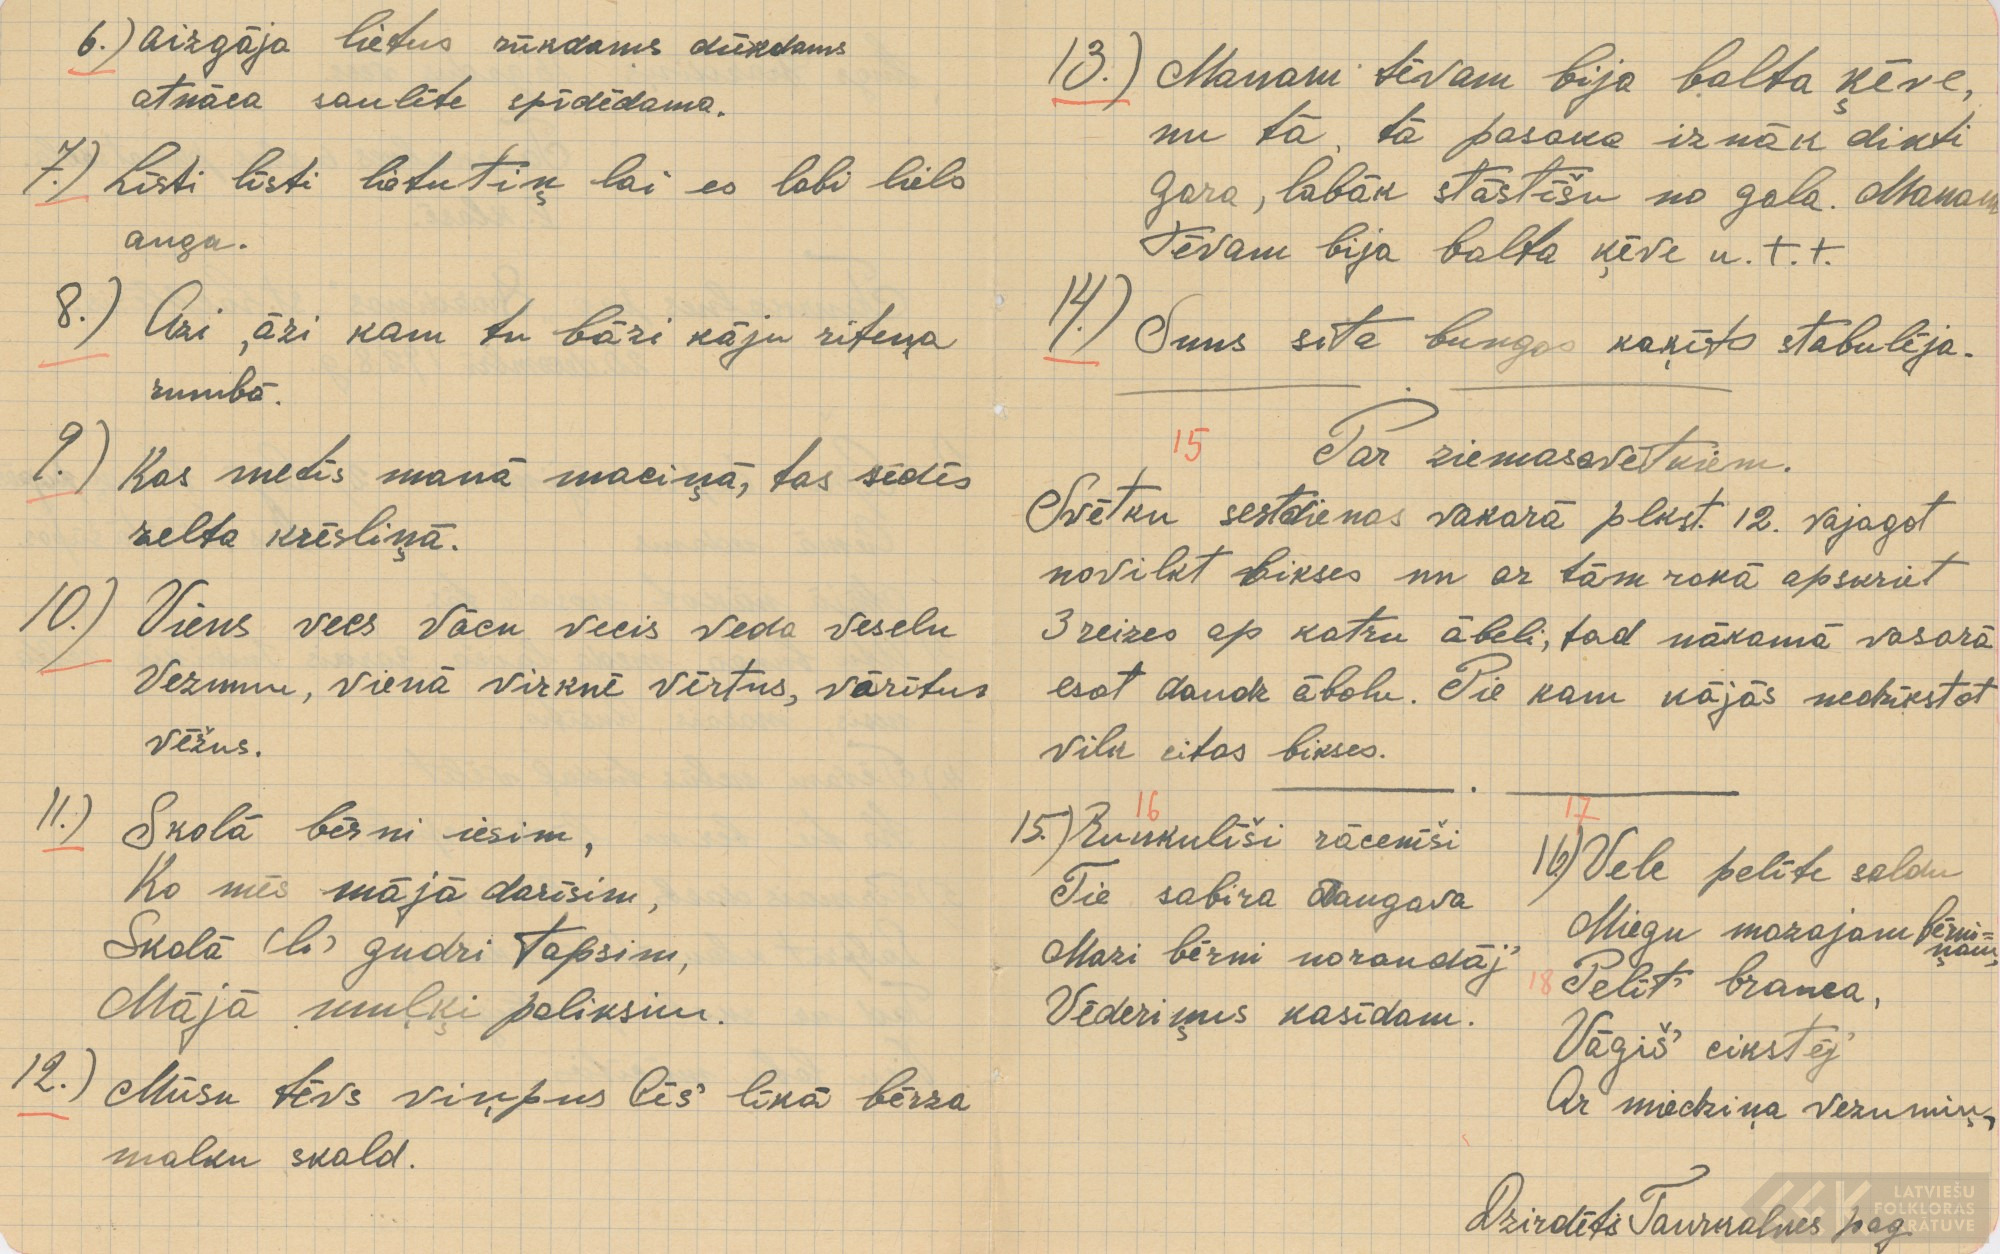 6.) Aizgāja lietus rūkdams dūkdams
atnāca saulīte spīdēdama.
7.) Līsti līsti lietutiņ lai es labi liels
augu.
8.) Āzi, āzi kam tu bāzi kāju riteņa
rumbā.
9.) Kas metīs manā maciņā, tas sēdēs
zelta krēsliņā.
10.) Viens vecs vācu vecis veda veselu
Vezmuu, vienā virknē vērtus, vārītus
vēžus.
11.) Skolā bērni iesim,
Ko mēs mājā darīsim,
Skolā (b) gudri tapsim,
Mājā muļķi paliksim.
12.) Mūsu tēvs viņpus cēs' līkā bērza
malku skald.
13.) Manam tēvam bija balta ķēve,
nu tā, tā pasaka iznāk dikti
gara, labāk stāstīšu no gala. Manam
tēvam bija balta ķēve u. t. t.
14.) Suns sita bungas kaķīts stabulēja.
15 Par ziemassvētkiem.
Svētku sestdienas vakarā plkst. 12. vajagot
novilkt bikses un ar tām rokā apskriet
3 reizes ap katru ābeli, tad nākamā vasarā
esot daudz ābolu. Pie kam kājās nedrīkstot
vilk citas bikses.
16
15.) Runkulīši rācenīši
Tie sabira Daugava
Mazi bērni noraudāj'
Vēderiņus kasīdam.
17
16) Velc pelīte saldu
Miegu mazajam bērni=
ņam,
18 Pelīt' brauca,
Vāģiš' čikstēj'
Ar miedziņa vezumiņ,
Dzirdēts Taurkalnes pag.
LATVIEŠU
FOLKLORAS
KRĀTUVE